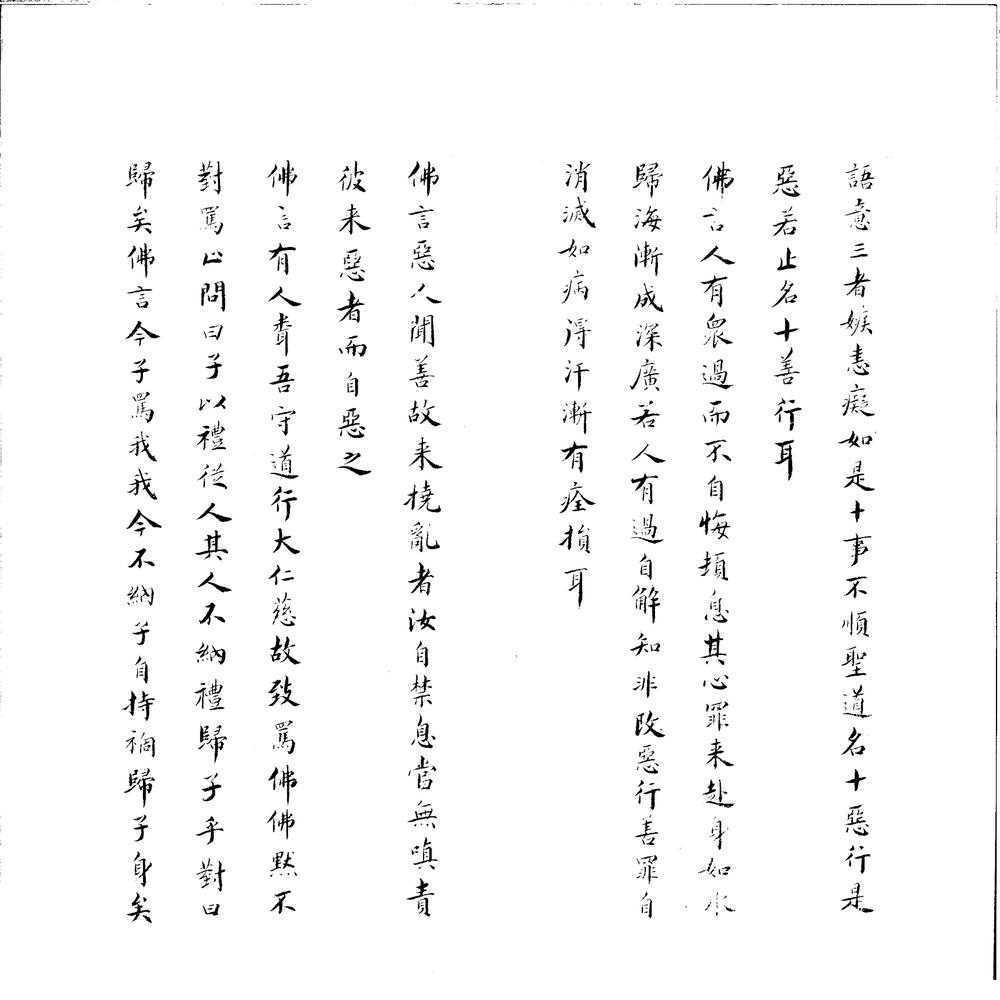 語意三者嫉恚癡如是十事不順聖道名十惡行是
惡若止名十善行耳
佛言人有衆過而不自悔頓息其心罪来赴身如水
歸海漸成深廣若人有過自解知非改惡行善罪自
消滅如病得汗漸有痊損耳
佛言惡人聞善故来撓亂者汝自禁息當無嗔責
彼来惡者而自惡之
佛言有人責吾守道行大仁慈故致罵佛佛默不
對罵止問曰子以禮從人其人不納禮歸子乎對曰
歸矣佛言今子罵我我今不納子自持禍歸子身矣